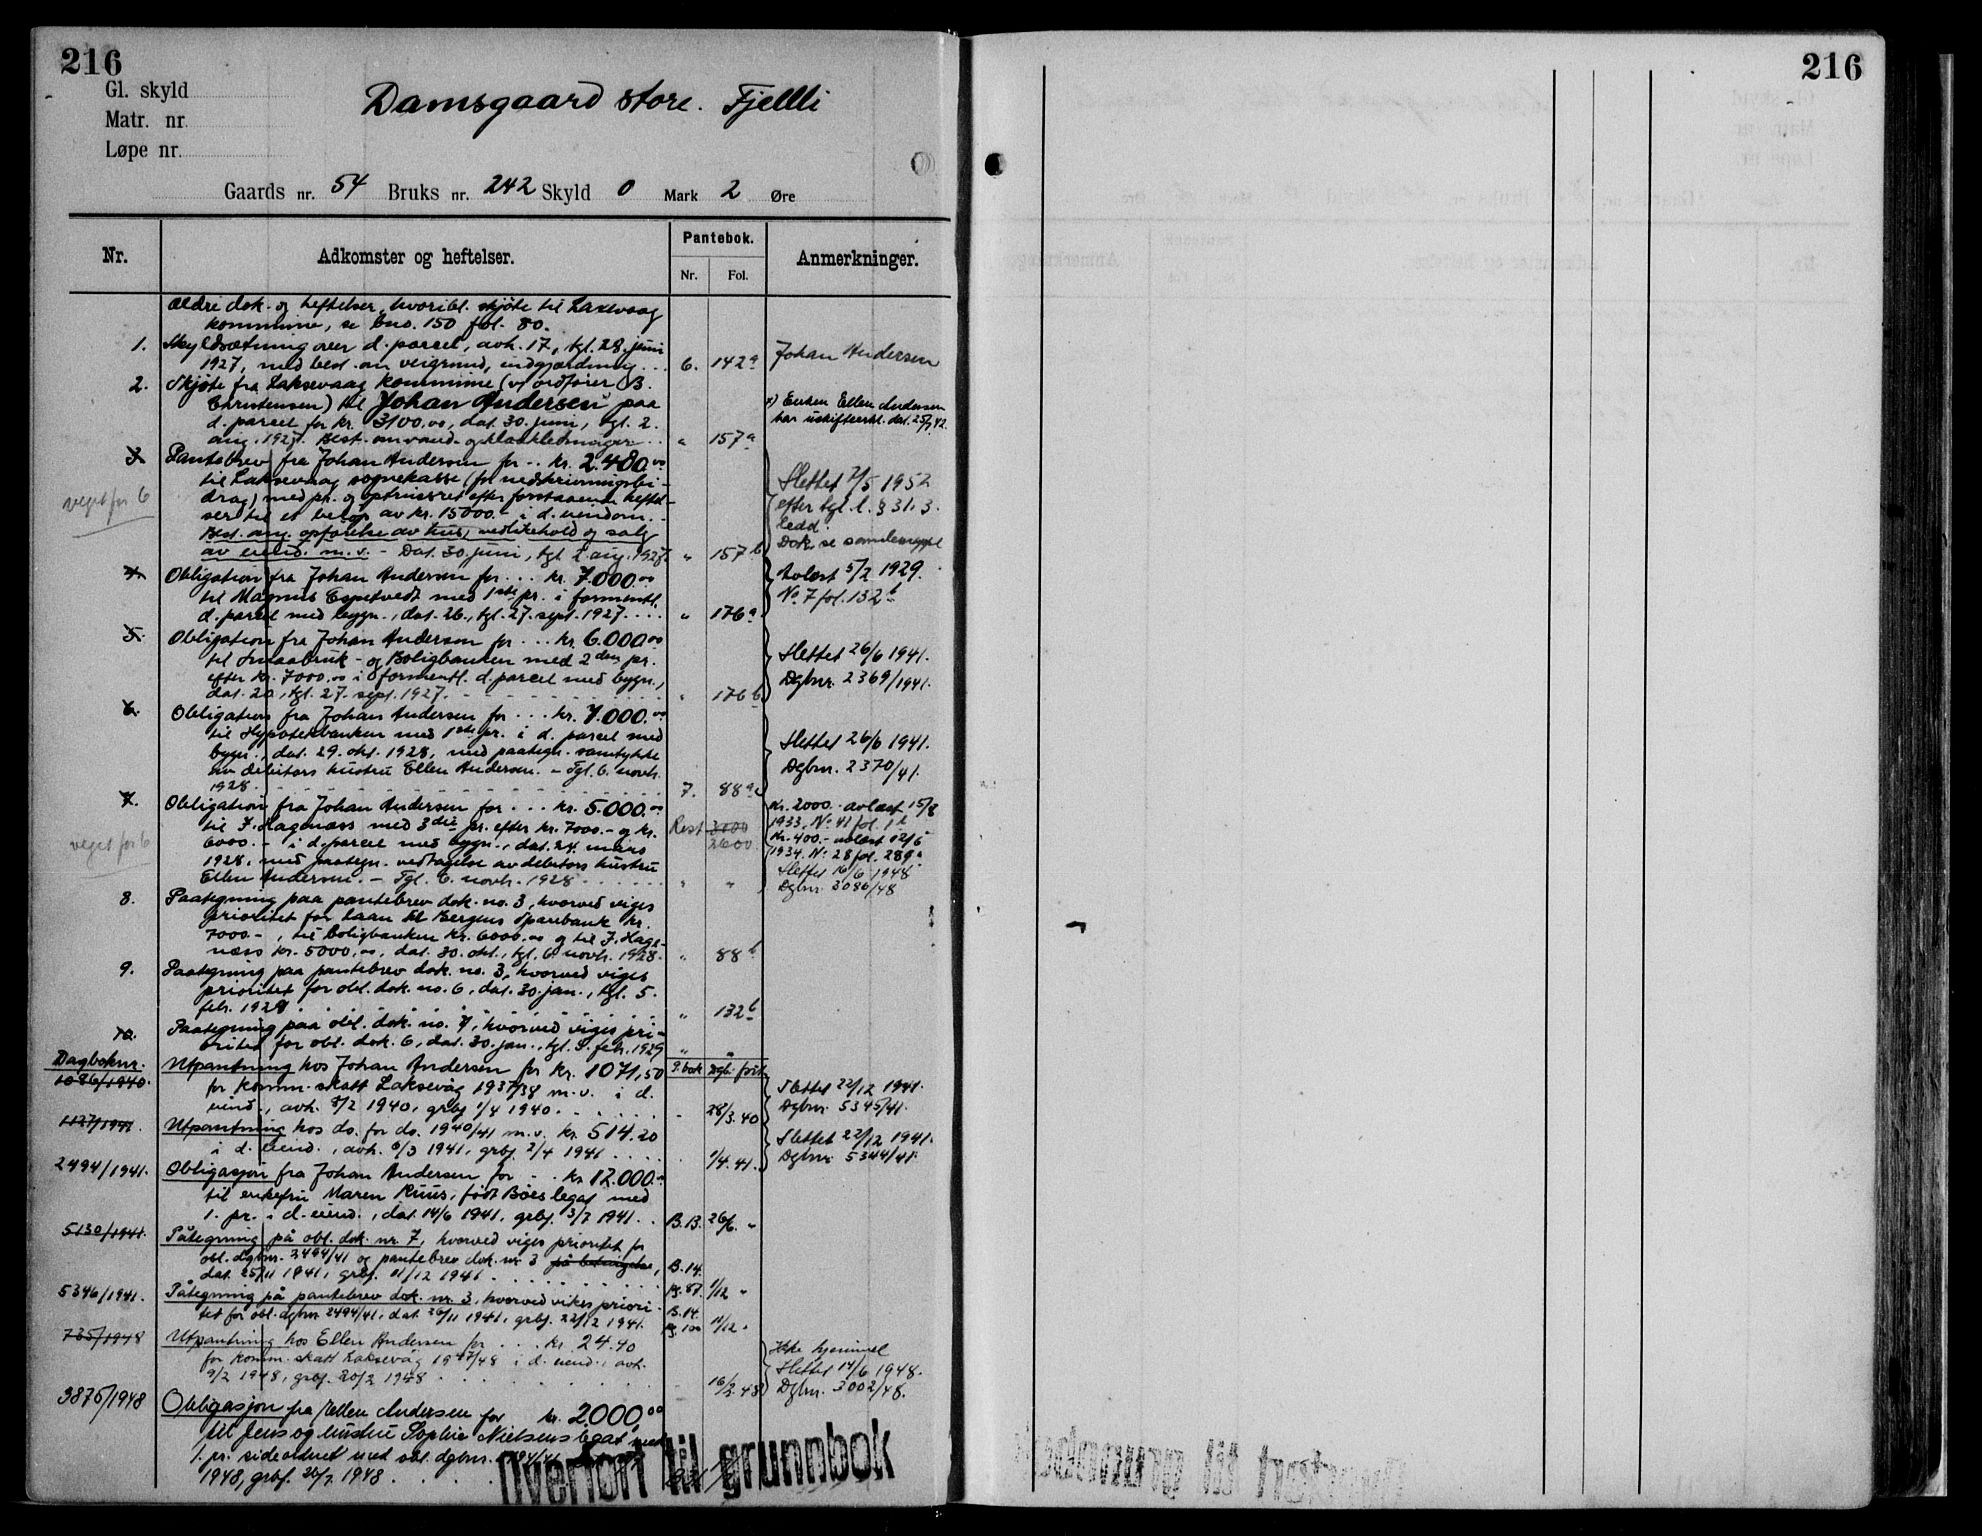 216
216
Gl. skyld
Matr. nr.
Løpe nr.
Damsgaard store. Fjellli
Gaards nr. 54 Bruks nr. 242 Skyld 0 Mark 2 Øre
Nr.
Adkomster og heftelser.
Pantebok.
Nr.
Fol.
Anmerkninger.
Ældre dok. og heftelser, hvoribl. skjøte til Laxevaag
kommune, se bno. 150 fol. 80.
1. Skyldsætning over d. parcel, avh. 17, tgl. 28. juni
1927, med best. om veigrund, indgjærdning ... 6. 142a
Johan Andersen
2. Skjøte fra Laksevaag kommune (v/ ordfører B.
Christensen) til Johan Andersen paa
d. parcel for kr. 3100.00, dat. 30. juni, tgl. 2.
aug. 1927. Best. om vand- og kloakledninger. " 157a
x) Enken Ellen Andersen
har uskifteerkl. dat. 25/7 42.
3. Pantebrev fra Johan Andersen for .. kr. 2.480.00
til Laksevaag sognekasse (for nedskrivningsbi-
drag) med pr. og optrinsret efter forstaaende heftel-
ser til et beløp av kr. 15000.- i d. eiendom.
Best. ang. opførelse av hus, vedlikehold og salg
av eiend. m.v. - Dat. 30. juni, tgl. 2. aug. 1927. " 157b
veget for 6
Slettet 2/5 1952
efter tgl. l. § 31. 3.
ledd.
Dok. se
4. Obligation fra Johan Andersen for ... kr. 7.000.00
til Magnus Espetvedt med 1ste pr. i formentl.
d. parcel med bygn., dat. 26., tgl. 27. sept. 1927 .... " 176a
Avlæst 5/2 1929.
No 7 fol. 132b
5. Obligation fra Johan Andersen for ... kr. 6.000.00
til Smaabruk- og Boligbanken med 2den pr.
efter kr. 7000.00 i formentl. d. parcel med bygn.,
dat. 20., tgl. 27. sept. 1927. " 176b
Slettet 26/6 1941.
Dgbnr. 2369/1941.
6. Obligation fra Johan Andersen for ... kr. 7.000.00
til Hypotekbanken med 1ste pr. i d. parcel med
bygn., dat. 29. okt. 1928, med paategn. samtykke
av debitors hustru Ellen Andersen. - Tgl. 6. novb.
1928. 7. 88a
Slettet 26/6 1941.
Dgbnr. 2370/41.
7. Obligation fra Johan Andersen for ... kr. 5.000.00
til J. Hagenæss med 3die pr. efter kr. 7000.- og kr.
6000.- i d. parcel med bygn., dat. 24. mars
1928, med paategn. vedtagelse av debitors hustru
Ellen Andersen. - Tgl. 6. novb. 1928 ...... " "
Rest 3000
2600
veget for 6
Kr. 2000.- avlæst 15/8
1933, No 41 fol. 1b
Kr. 400.- avlæst 02/5
1934. No 28 fol. 289a
Slettet 16/6 1948
Dgbnr. 3086/48
8. Paategning paa pantebrev dok. no. 3, hvorved viges
prioritet for laan til Bergens Sparebank kr.
7000.-, til Boligbanken kr. 6000.00 og til J. Hage-
næss kr. 5000.00, dat. 30. okt., tgl. 6. novb. 1928. " 88b
9. Paategning paa pantebrev dok. no. 3, hvorved viges
prioritet for obl. dok. no. 6, dat. 30. jan., tgl. 5.
febr. 1929 . . . . " 132b
10. Paategning paa obl. dok. no. 7, hvorved viges pri-
oritet for obl. dok. 6, dat. 30. jan., tgl. 5. febr. 1929 " "
Dagboknr.
1086/1940. Utpantning hos Johan Andersen for kr. 1071,50
for komm. skatt Laksevåg 1937/38 m.v. i d.
eiend., avh. 8/2 1940, grbf. 1/4 1940. . . . . - 28/3.40
Slettet 22/12 1941.
Dgbnr. 5345/41.
1127/1941. Utpantning hos do. for do. 1940/41 m.v. kr. 514.20
i d. eiend., avh. 6/3 1941, grbf. 2/4 1941 .... 1/4.41.
Slettet 22/12 1941.
Dgbnr. 5344/41.
2494/1941. Obligasjon fra Johan Andersen for - . kr. 12.000.-
til enkefru Maren Kuus, født Bøes legat med
1. pr. i d. eiend., dat. 14/6 1941, grbf. 3/7 1941 .. B.B. 26/6. "
5130/1941. Påtegning på obl. dok. nr. 7, hvorved viges prioritet for
obl. dgbnr. 2494/41 og pantebrev dok. nr. 3 på betingelse,
dat. 25/11 1941, grbf. 11/12 1941. B.14.
pg. 87. 1/12 "
5346/1941. Påtegning på pantebrev dok. nr. 3, hvorved vikes priori-
tet for obl. dgbnr. 2494/41, dat. 26/11 1941, grbf. 22/12 1941. B.14.
pg. 100 11/12 "
735/1948 Utpantning hos Ellen Andersen for ... kr. 24.40
for komm. skatt Laksevåg 1947/48 i d. eiend., avh.
9/2 1948, grbf. 20/2 1948 16/2.48
Ikke hjemmel
Slettet 14/6 1948.
Dgbnr. 3002/48.
3875/1948 Obligasjon fra Ellen Andersen for kr. 2000,00
til Jens og hustru Sophie Nielsens legat med
1. pr. sideordnet med obl. dgbnr. 2494/41
1948, grbf. 26/7 1948 . . .
Overført til grunnbok